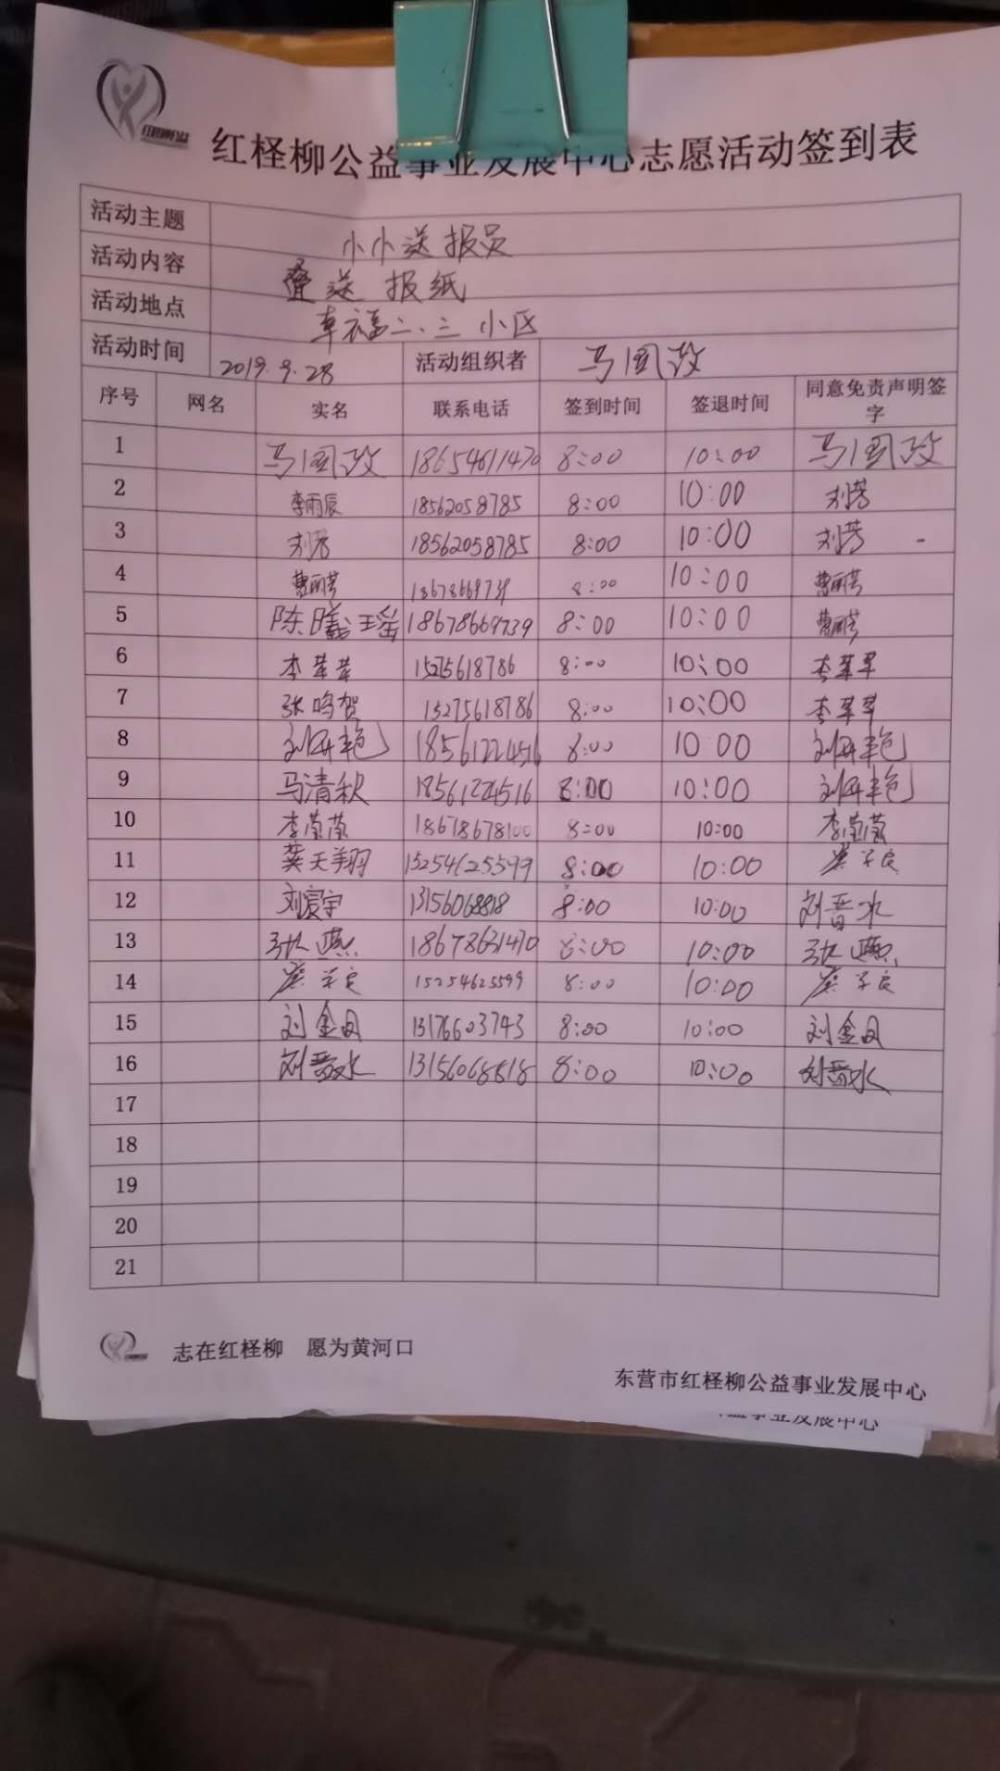 红柽柳公益事业发展中心志愿活动签到表
活动主题 小小送报员
活动内容 叠送报纸
活动地点 幸福二、三小区
活动时间 2019.9.28 活动组织者 马国政
序号 网名 实名 联系电话 签到时间 签退时间 同意免责声明签字
1 马国政 18654611470 8:00 10:00 马国政
2 李雨辰 18562058785 8:00 10:00 刘芳
3 刘芳 18562058785 8:00 10:00 刘芳
4 曹丽芳 18678669739 8:00 10:00 曹丽芳
5 陈曦瑶 18678669739 8:00 10:00 曹丽芳
6 李苹苹 15275618786 8:00 10:00 李苹苹
7 张鸣贺 15275618786 8:00 10:00 李苹苹
8 18561224516 8:00 10 00
9 马清秋 18561224516 8:00 10:00
10 李莹莹 18678678100 8:00 10:00 李莹莹
11 龚天翔 15254625599 8:00 10:00
12 刘宸宇 13156068818 8:00 10:00 刘晋水
13 张燕 18678631470 8:00 10:00 张燕
14 15254625599 8:00 10:00
15 刘金同 13176603743 8:00 10:00 刘金同
16 刘晋水 13156068818 8:00 10:00 刘晋水
17
18
19
20
21
志在红柽柳 愿为黄河口
东营市红柽柳公益事业发展中心
益事业发展中心